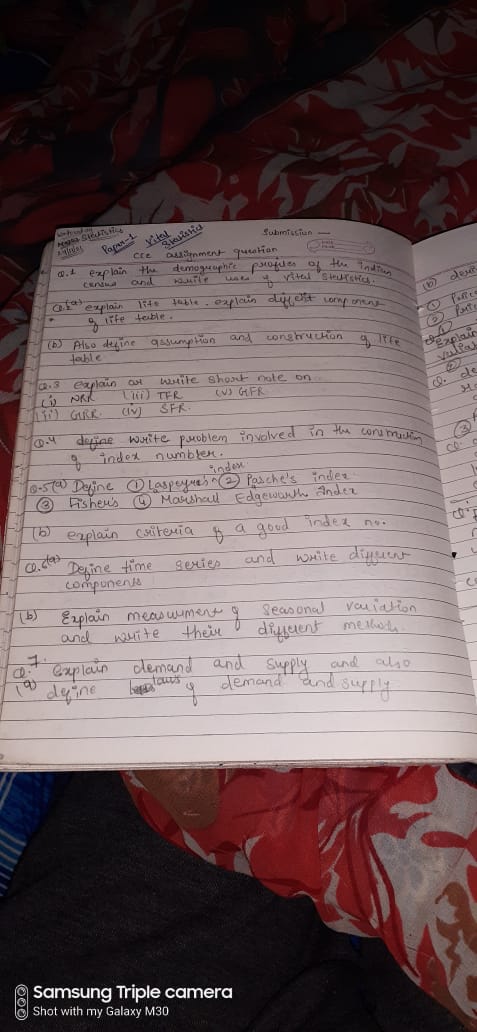 Statistics
Paper-1 Vital Statistics
Submission —
CCE assignment question
Q.1 explain the demographic profiles of the Indian
census and write uses of vital Statistics.
Q.2(a) explain life table. explain different component
of life table.
(b) Also define assumption and construction of life
table
Q.3 explain or write short note on
(i) NRR (iii) TFR (v) GFR
(ii) GRR (iv) SFR.
Q.4 define write problem involved in the construction
of index number.
Q.5(a) Define ① Laspeyres index ② Pasche's index
③ Fisher's ④ Marshall Edgeworth Index
(b) explain criteria of a good index no.
Q.6(a) Define time series and write different
components
(b) Explain measurment of seasonal variation
and write their different methods.
Q.7.
(a) explain demand and supply and also
define laws of demand and supply
(b)
①
②
Explain
③
Samsung Triple camera
Shot with my Galaxy M30